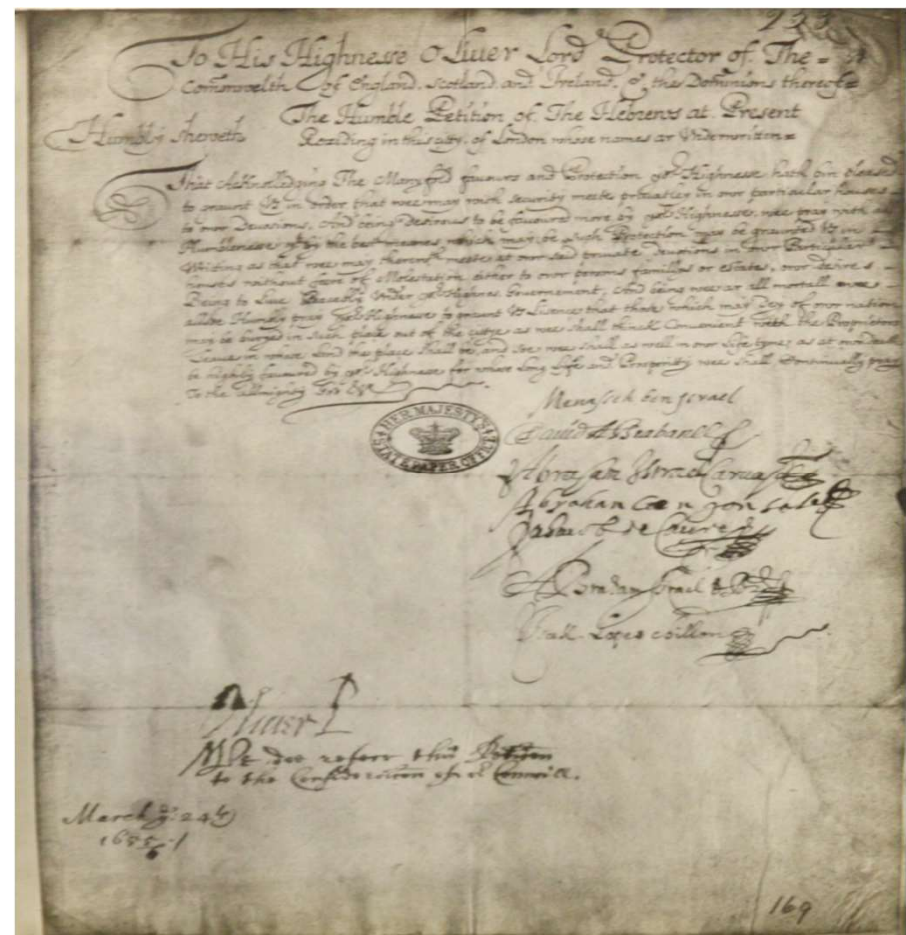 To His Highnesse Oliver Lord Protector of The
Comonwelth of England, Scotland, and Ireland, & the Dominions thereof
The Humble Petition of The Hebrews at Present
Humbly sheweth
Reziding in this citty of London whose names ar Underwritten
That Acknolledging The Manyfold favours and Protection yor Highnesse hath bin pleased
to graunt us in order that wee may with security meete privatley in owr particular houses
to owr Devosions, And being desirous to be favoured more by yor Highnesse, wee pray with all
Humblenesse yt by the best meanes, which may be, such Protection may be graunted us in
Writting as that wee may therewth meete at owr said private devotions in owr Particuler
houses without feere of Molestation either to owr persons famillys or estates, owr desires
Being to Live Peacebly Under yor Highnes Governement, And being wee ar all mortall wee
allsoe Humbly pray yor Highnesse to graunt us Lisence that those which may Dey of owr nation
may be buryed in such place out of the cittye as wee shall thinck Convenient with the Proprietors
Leave in whose Land this place shall be, and soe wee shall as well in owr Life tyme, as at owr death
be highly favoured by yor Highnesse for whose Long Life and Prosperitty wee shall Continually pray
To the allmighty God
Menasseh ben Israel
David Abrabanel
HER MAJESTY'S
STATE PAPER OFFICE
Abraham Israel Carvajal
Abraham Coen Gonzales
Jahacob de Caceres
Abraham Israel
Isak Lopes Chillon
Oliver P
Wee doe referr this Peticon
to the Consideracon of the Councill.
March ye: 24th
1655
169